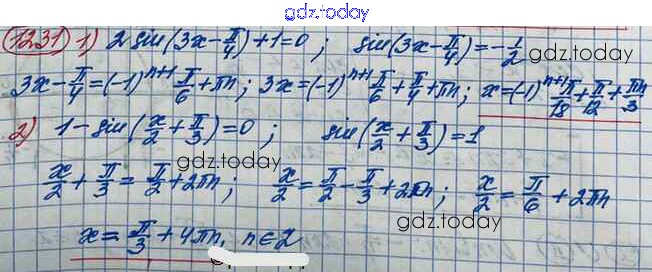 gdz.today
1231 1) 2 sin(3x - π/4) + 1 = 0 ; sin(3x - π/4) = -1/2
3x - π/4 = (-1)^(n+1) π/6 + πn ; 3x = (-1)^(n+1) π/6 + π/4 + πn ; x = (-1)^(n+1) π/18 + π/12 + πn/3
2) 1 - sin(x/2 + π/3) = 0 ; sin(x/2 + π/3) = 1
gdz.today
gdz.today
x/2 + π/3 = π/2 + 2πn ; x/2 = π/2 - π/3 + 2πn ; x/2 = π/6 + 2πn
gdz.today
x = π/3 + 4πn, n∈Z